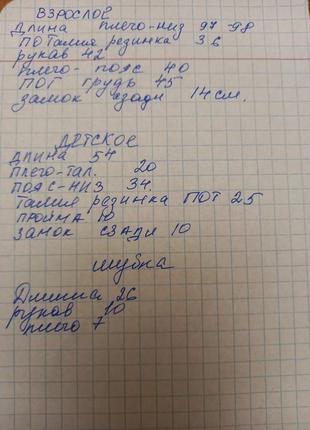 ВЗРОСЛОЕ
Длина плечо-низ 97-98
ПО Талия резинка 36
рукав 42
плечо-пояс 40
ПОГ грудь 45
замок сзади 14 см.
ДЕТСКОЕ
длина 54
плечо-тал. 20
пояс-низ 34.
талия резинка ПОТ 25
пройма 10
замок сзади 10
шубка
Длина 26
рукав 10
плечо 7